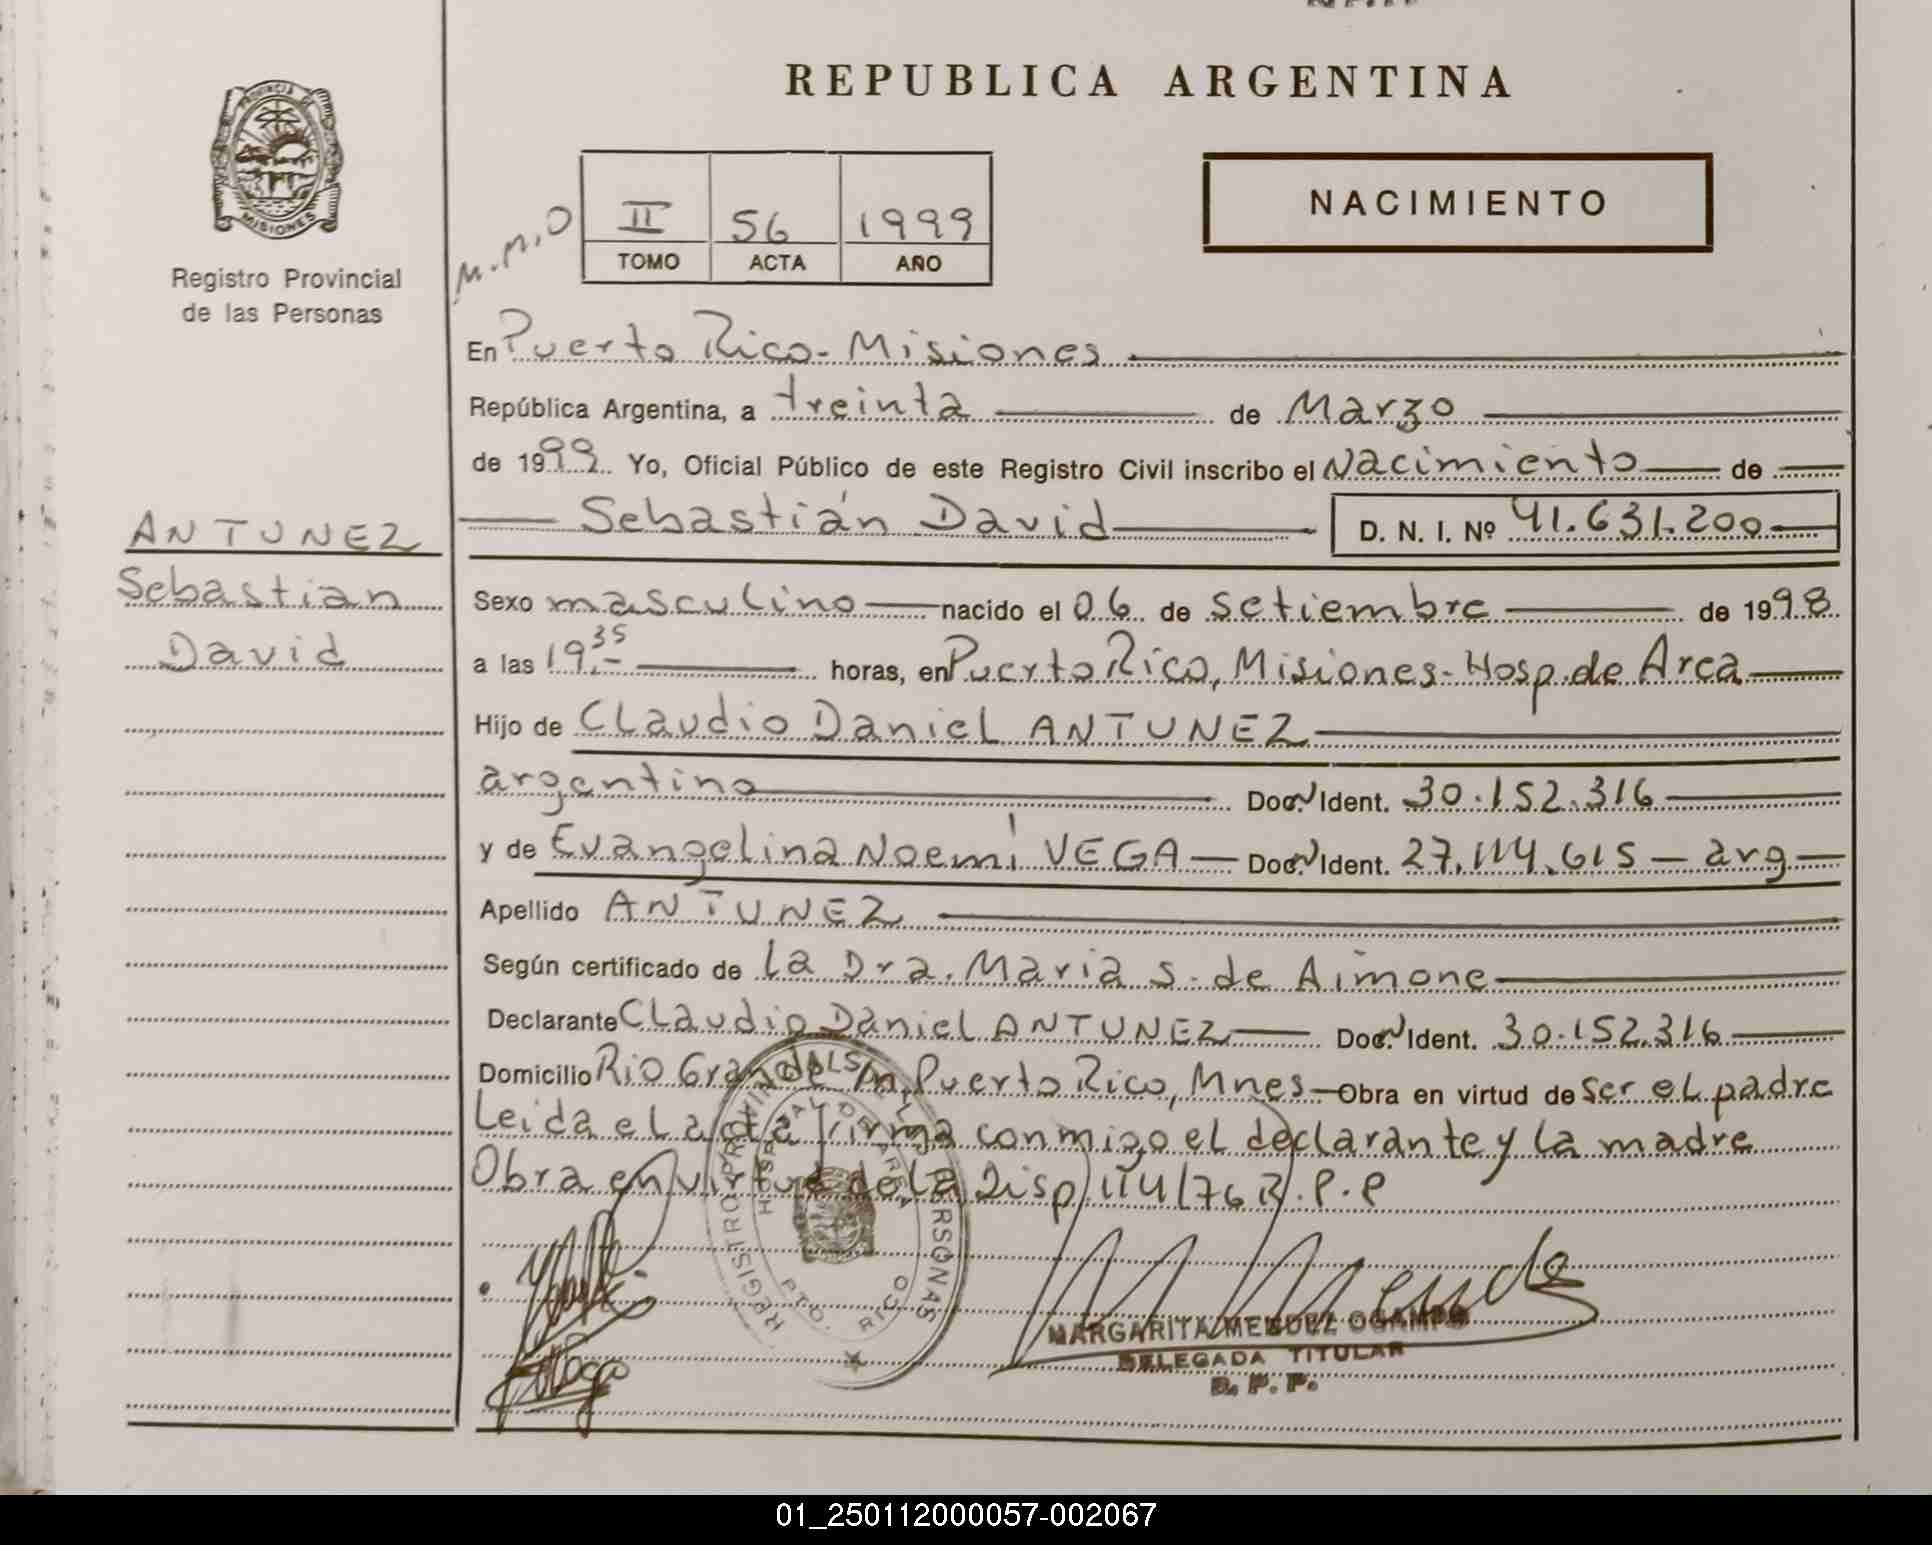 REPUBLICA ARGENTINA
PROVINCIA DE
MISIONES
Registro Provincial
de las Personas
NACIMIENTO
M.M.O
II 56 1999
TOMO ACTA AÑO
En Puerto Rico - Misiones
República Argentina, a treinta de Marzo
de 1999. Yo, Oficial Público de este Registro Civil inscribo el Nacimiento de
Sebastián David D. N. I. Nº 41.631.200
ANTUNEZ
Sebastian
David
Sexo masculino nacido el 06 de setiembre de 1998
a las 19.35 horas, en Puerto Rico, Misiones - Hosp. de Area
Hijo de Claudio Daniel ANTUNEZ
argentino Doc. N Ident. 30.152.316
y de Evangelina Noemí VEGA — Doc. N Ident. 27.114.615 — arg —
Apellido ANTUNEZ
Según certificado de la Dra. Maria S. de Aimone
Declarante Claudio Daniel ANTUNEZ Doc. N Ident. 30.152.316
Domicilio Rio Grande Puerto Rico, Mnes — Obra en virtud de ser el padre
Leida el acta firma conmigo el declarante y la madre
Obra en virtud de la Disp 114/76 R.P.P
REGISTRO PROVINCIAL DE LAS PERSONAS
HOSPITAL DE AREA
PTO. RICO
MARGARITA MENDEZ OCAMPO
DELEGADA TITULAR
R. P. P.
01_250112000057-002067